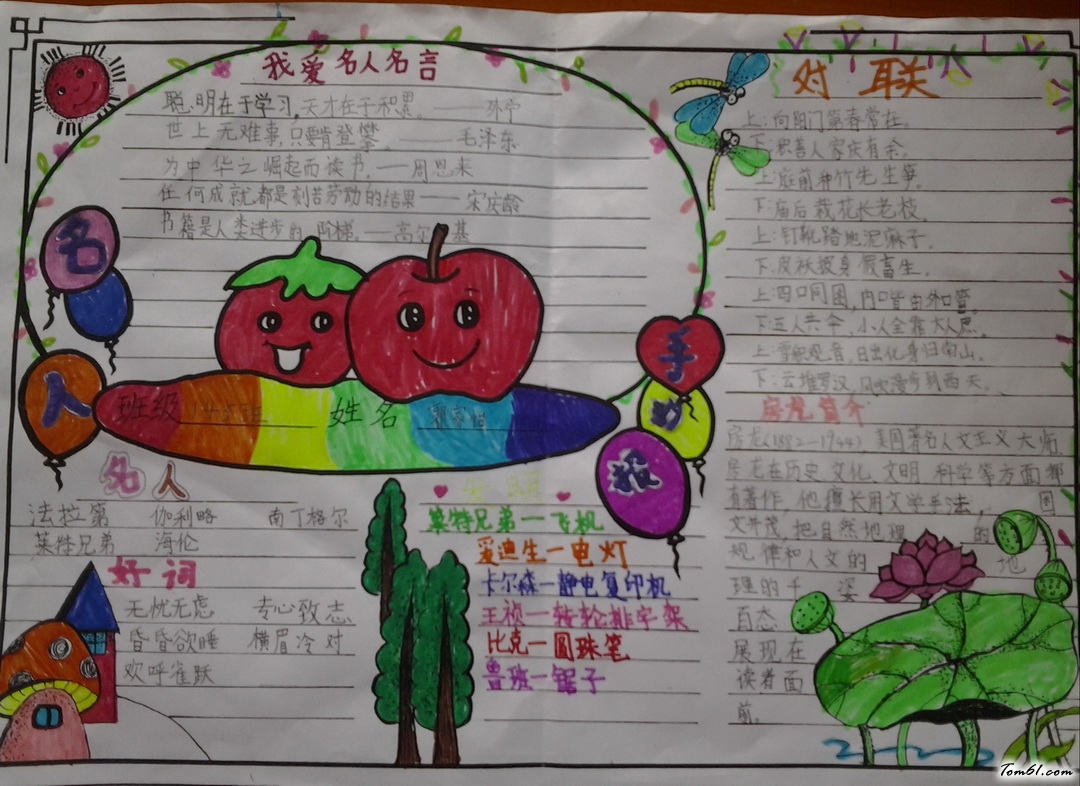 我爱名人名言
聪明在于学习,天才在于积累。
世上无难事,只要肯登攀。——毛泽东
为中华之崛起而读书。——周恩来
任何成就都是刻苦劳动的结果——宋庆龄
书籍是人类进步的阶梯。——高尔基
名
人
手
抄
报
班级
姓名
名人
法拉第 伽利略 南丁格尔
莱特兄弟 海伦
好词
无忧无虑 专心致志
昏昏欲睡 横眉冷对
欢呼雀跃
莱特兄弟—飞机
爱迪生—电灯
卡尔森—静电复印机
王祯—转轮排字架
比克—圆珠笔
鲁班—锯子
对联
上:向阳门第春常在。
下:积善人家庆有余。
上:庭前种竹先生笋。
下:庙后栽花长老枝。
上:钉靴踏地泥麻子。
下:皮袄披身假畜生。
上:四口同图,内口皆由外口管。
下:五人共伞,小人全靠大人庶。
上:雪积观音,日出化身归南山。
下:云堆罗汉,风吹漫步到西天。
房龙简介
房龙(1882—1944)美国著名人文主义大师
房龙在历史 文化 文明 科学等方面都
有著作,他擅长用文学手法, 图
文并茂,把自然地理 的 地
规律和人文的
理的千 姿
百态
展现在
读者面
前。
Tom61.com